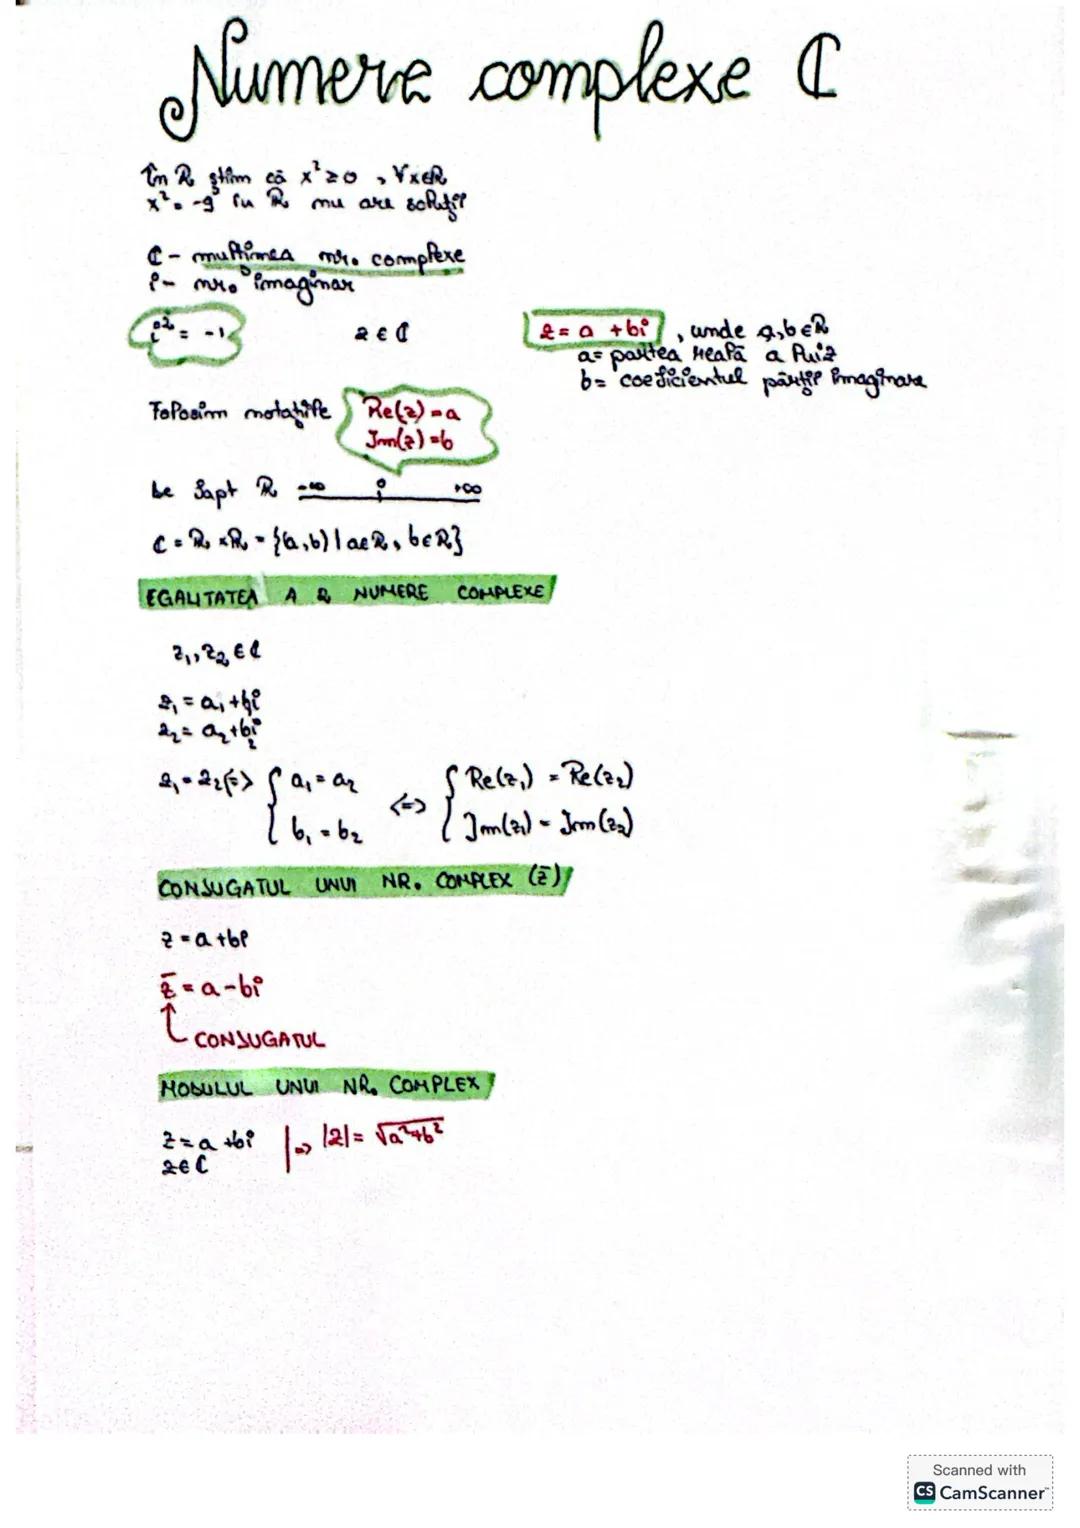 Numere complexe ℂ
În ℝ știm că x² ≥ 0, ∀x∈ℝ
x² = -9 în ℝ nu are soluții
ℂ - mulțimea nr. complexe
i - nr. imaginar
i² = -1 z ∈ ℂ z = a + bi, unde a, b ∈ ℝ
a = partea reală a lui z
b = coeficientul părții imaginare
Folosim notațiile Re(z) = a
Im(z) = b
De fapt ℝ -∞ 0 +∞
ℂ = ℝ × ℝ = {(a,b) | a∈ℝ, b∈ℝ}
EGALITATEA A 2 NUMERE COMPLEXE
z₁, z₂ ∈ ℂ
z₁ = a₁ + b₁i
z₂ = a₂ + b₂i
z₁ = z₂ (=> { a₁ = a₂ <=> { Re(z₁) = Re(z₂)
b₁ = b₂ Im(z₁) = Im(z₂)
CONJUGATUL UNUI NR. COMPLEX (z̄)
z = a + bi
z̄ = a - bi
CONJUGATUL
MODULUL UNUI NR. COMPLEX
z = a + bi | => |z| = √a²+b²
z ∈ ℂ
Scanned with
CS CamScanner™